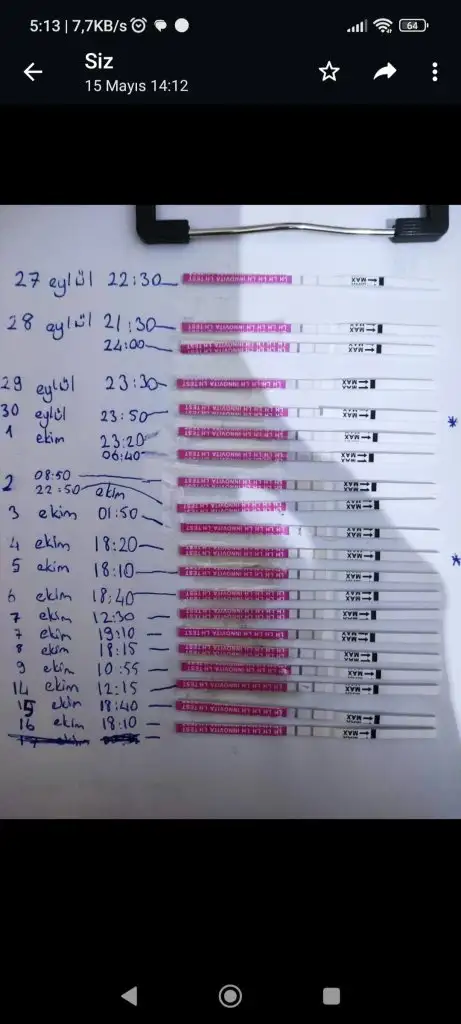 5:13 | 7,7KB/s
64
Siz
15 Mayıs 14:12
27 eylül 22:30
28 eylül 21:30
24:00
29 eylül 23:30
30 eylül 23:50
1 ekim 23:20
06:40
2 08:50
22:50 ekim
3 ekim 01:50
4 ekim 18:20
5 ekim 18:10
6 ekim 18:40
7 ekim 12:30
7 ekim 19:10
8 ekim 18:15
9 ekim 10:55
14 ekim 12:15
15 ekim 18:40
16 ekim 18:10
LH LH LH INNOVITA LH TEST
MAX